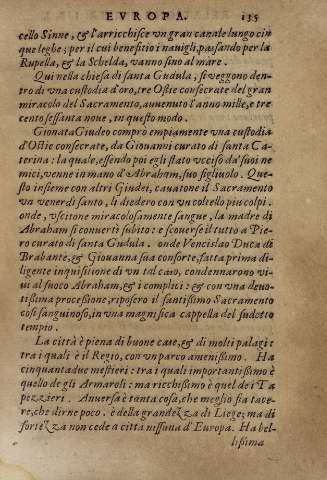 EVROPA. 135
cello Sinne, & l'arricchisce vn gran canale lungo cin
que leghe; per il cui benefitio i nauigli, passando per la
Rupella, & la Schelda, vanno sino al mare.
Qui nella chiesa di santa Gudula, si veggono den-
tro di vna custodia d'oro, tre Ostie consecrate del gran
miracolo del Sacramento, auuenuto l'anno mille, e tre
cento sessanta noue, in questo modo.
Gionata Giudeo comprò empiamente vna custodia
d'Ostie consecrate, da Giouanni curato di santa Ca-
terina: la quale, essendo poi egli stato vcciso da' suoi ne
mici, venne in mano d'Abraham, suo figliuolo. Que-
sto insieme con altri Giudei, cauatone il Sacramento
vn venerdi santo, li diedero con vn coltello piu colpi.
onde, vscitone miracolosamente sangue, la madre di
Abraham si conuertì subito: e scouerse il tutto a Pie-
ro curato di santa Gudula. onde Vencislao Duca di
Brabante, & Giouanna sua consorte, fatta prima di-
ligente inquisitione di vn tal caso, condennarono vi-
ui al fuoco Abraham, & i complici: & con vna deuo-
tissima processione, riposero il santissimo Sacramento
cosi sanguinoso, in vna magnifica cappella del sudetto
tempio.
La città è piena di buone case, & di molti palagi:
tra i quali è il Regio, con vn parco amenissimo. Ha
cinquantadue mestieri: tra i quali importantissimo è
quello de gli Armaroli: ma ricchissimo è quel de i Ta
pezzeri. Anuersa è tanta cosa, che meglio fia tace-
re, che dirne poco. è della grandezza di Liege; ma di
fortezza non cede a città nissuna d'Europa. Ha bel-
lissima